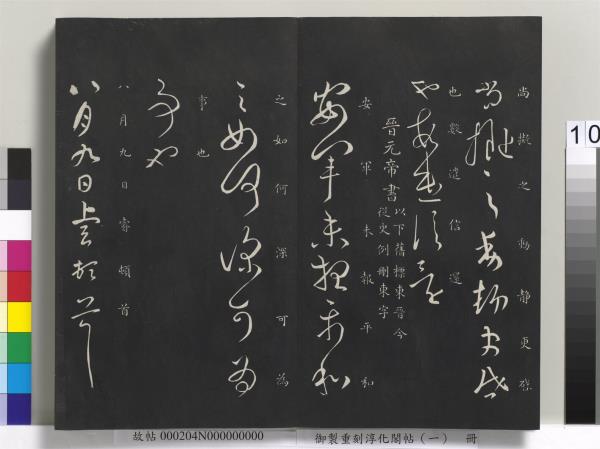 尚擬之動靜更
尚擬之動靜更
也數遣信還
也數遣信還
晉元帝書
以下舊標東晉今
從史例刪東字
安軍未報平和
安軍未報平和
之如何深可為
之如何深可為
事也
事也
八月九日睿頓首
八月九日睿頓首
故帖 000204N000000000
御製重刻淳化閣帖（一） 冊
10